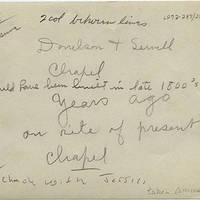 2 col between lines.
Donelson & Sewell
Chapel
ld have been built in late 1800's
Years ago
on site of present
chapel
Check with Jessie
taken